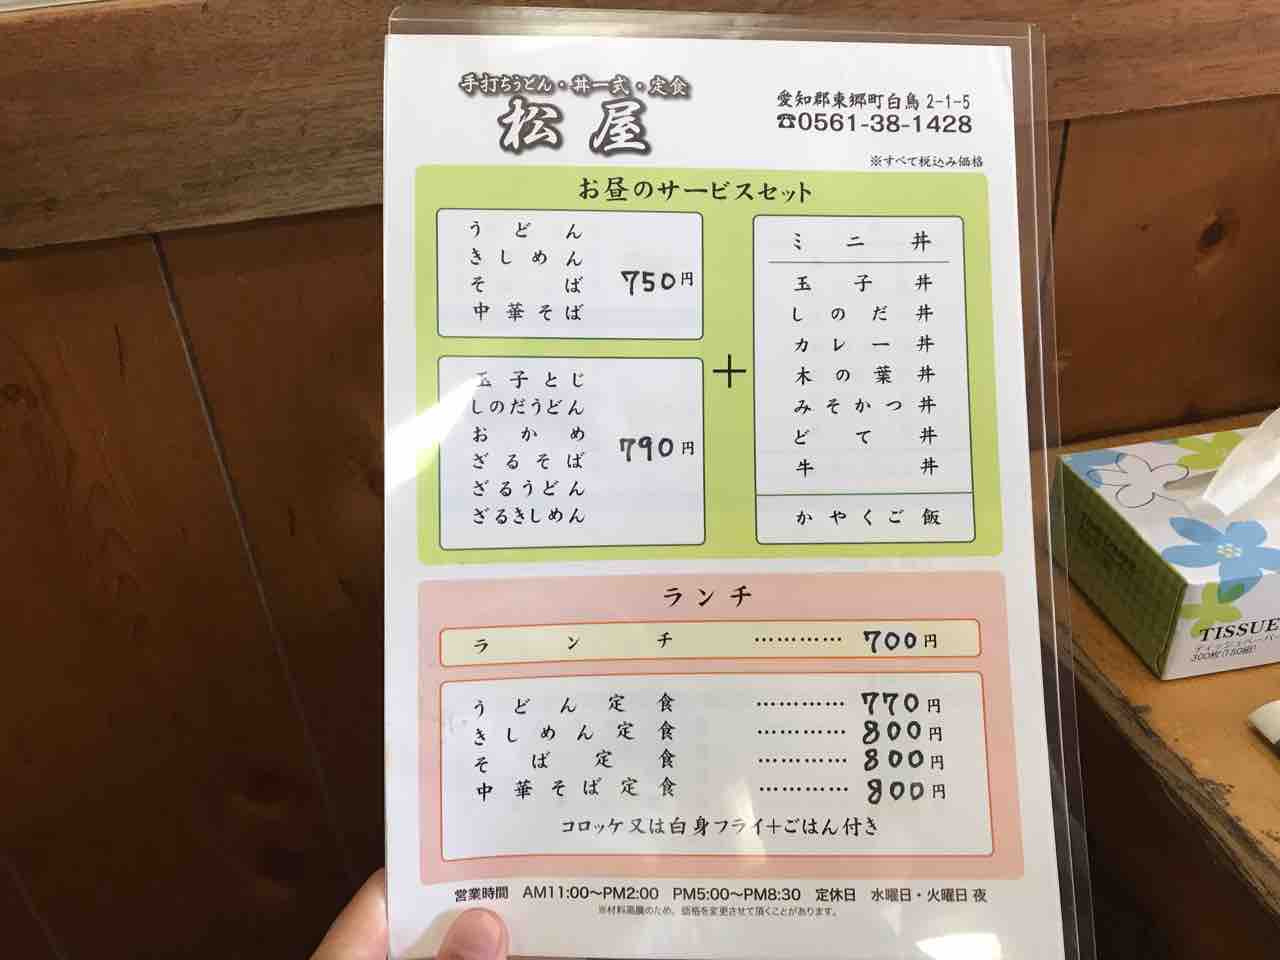 手打ちうどん・丼一式・定食
松屋
愛知郡東郷町白鳥 2-1-5
☎0561-38-1428
※すべて税込み価格
お昼のサービスセット
うどん
きしめん
そば
中華そば
750円
玉子とじ
しのだうどん
おかめ
ざるそば
ざるうどん
ざるきしめん
790円
+
ミニ丼
玉子丼
しのだ丼
カレー丼
木の葉丼
みそかつ丼
どて丼
牛丼
かやくご飯
ランチ
ランチ ………… 700円
うどん定食 ………… 770円
きしめん定食 ………… 800円
そば定食 ………… 800円
中華そば定食 ………… 800円
コロッケ又は白身フライ+ごはん付き
営業時間 AM11:00〜PM2:00 PM5:00〜PM8:30 定休日 水曜日・火曜日 夜
※材料高騰のため、価格を変更させて頂くことがあります。
TISSUE
ティシュペーパー
300枚(150組)